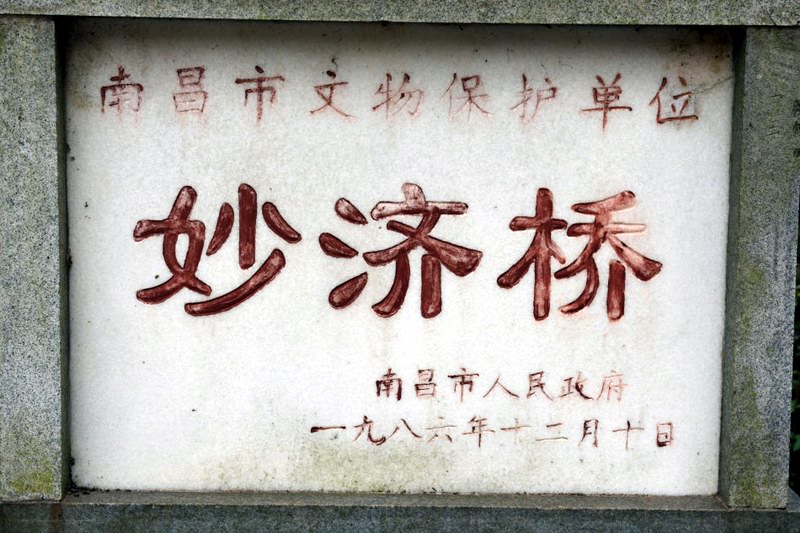 南昌市文物保护单位
妙济桥
南昌市人民政府
一九八六年十二月十日